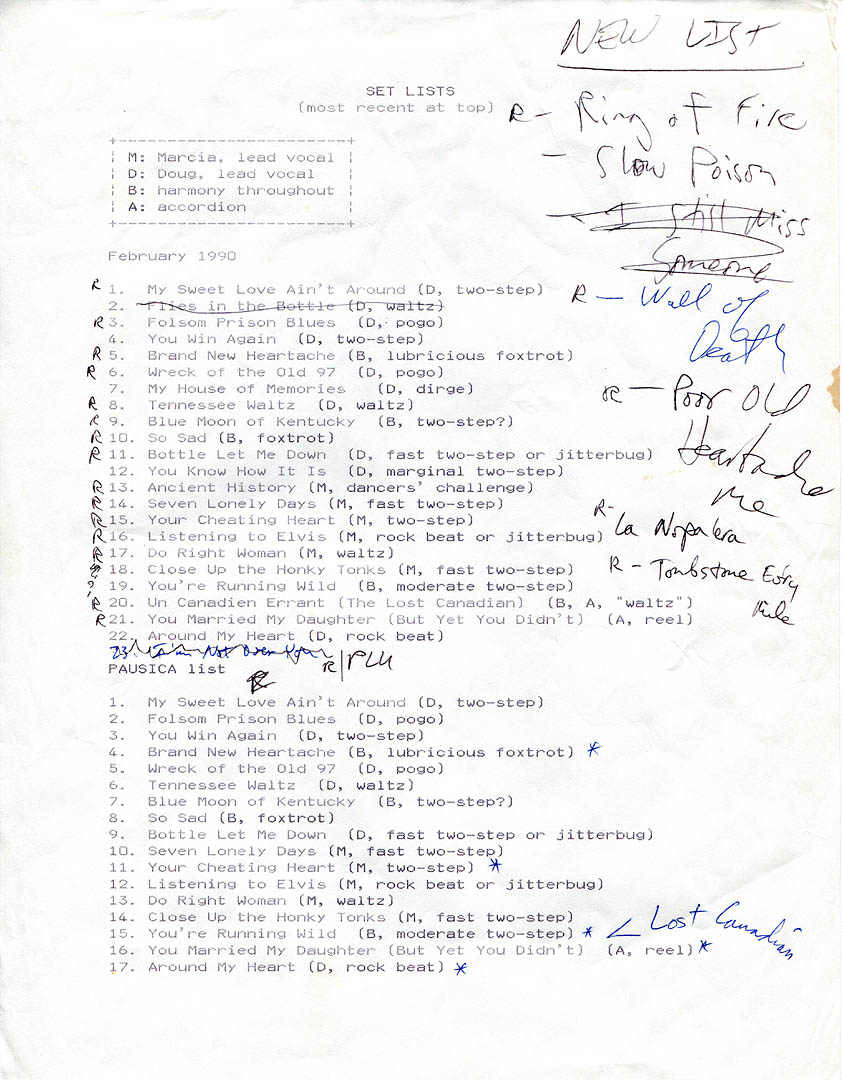 NEW LIST
SET LISTS
(most recent at top)
R - Ring of Fire
- Slow Poison
I Still Miss
Someone
R - Wall of
Death
R - Poor Old
Heartache
Me
R -
La Nopalera
R - Tombstone Every
Mile
M: Marcia, lead vocal
D: Doug, lead vocal
B: harmony throughout
A: accordion
February 1990
R 1. My Sweet Love Ain't Around (D, two-step)
2. Flies in the Bottle (D, waltz)
R 3. Folsom Prison Blues (D, pogo)
4. You Win Again (D, two-step)
R 5. Brand New Heartache (B, lubricious foxtrot)
R 6. Wreck of the Old 97 (D, pogo)
7. My House of Memories (D, dirge)
R 8. Tennessee Waltz (D, waltz)
R 9. Blue Moon of Kentucky (B, two-step?)
R 10. So Sad (B, foxtrot)
R 11. Bottle Let Me Down (D, fast two-step or jitterbug)
12. You Know How It Is (D, marginal two-step)
R 13. Ancient History (M, dancers' challenge)
R 14. Seven Lonely Days (M, fast two-step)
R 15. Your Cheating Heart (M, two-step)
R 16. Listening to Elvis (M, rock beat or jitterbug)
R 17. Do Right Woman (M, waltz)
18. Close Up the Honky Tonks (M, fast two-step)
? 19. You're Running Wild (B, moderate two-step)
R 20. Un Canadien Errant (The Lost Canadian) (B, A, "waltz")
R 21. You Married My Daughter (But Yet You Didn't) (A, reel)
22. Around My Heart (D, rock beat)
23. I'm Not Over You
R/PLU
PAUSICA list
R
1. My Sweet Love Ain't Around (D, two-step)
2. Folsom Prison Blues (D, pogo)
3. You Win Again (D, two-step)
4. Brand New Heartache (B, lubricious foxtrot) *
5. Wreck of the Old 97 (D, pogo)
6. Tennessee Waltz (D, waltz)
7. Blue Moon of Kentucky (B, two-step?)
8. So Sad (B, foxtrot)
9. Bottle Let Me Down (D, fast two-step or jitterbug)
10. Seven Lonely Days (M, fast two-step)
11. Your Cheating Heart (M, two-step) *
12. Listening to Elvis (M, rock beat or jitterbug)
13. Do Right Woman (M, waltz)
14. Close Up the Honky Tonks (M, fast two-step)
15. You're Running Wild (B, moderate two-step) * < Lost Canadian
16. You Married My Daughter (But Yet You Didn't) (A, reel) *
17. Around My Heart (D, rock beat) *